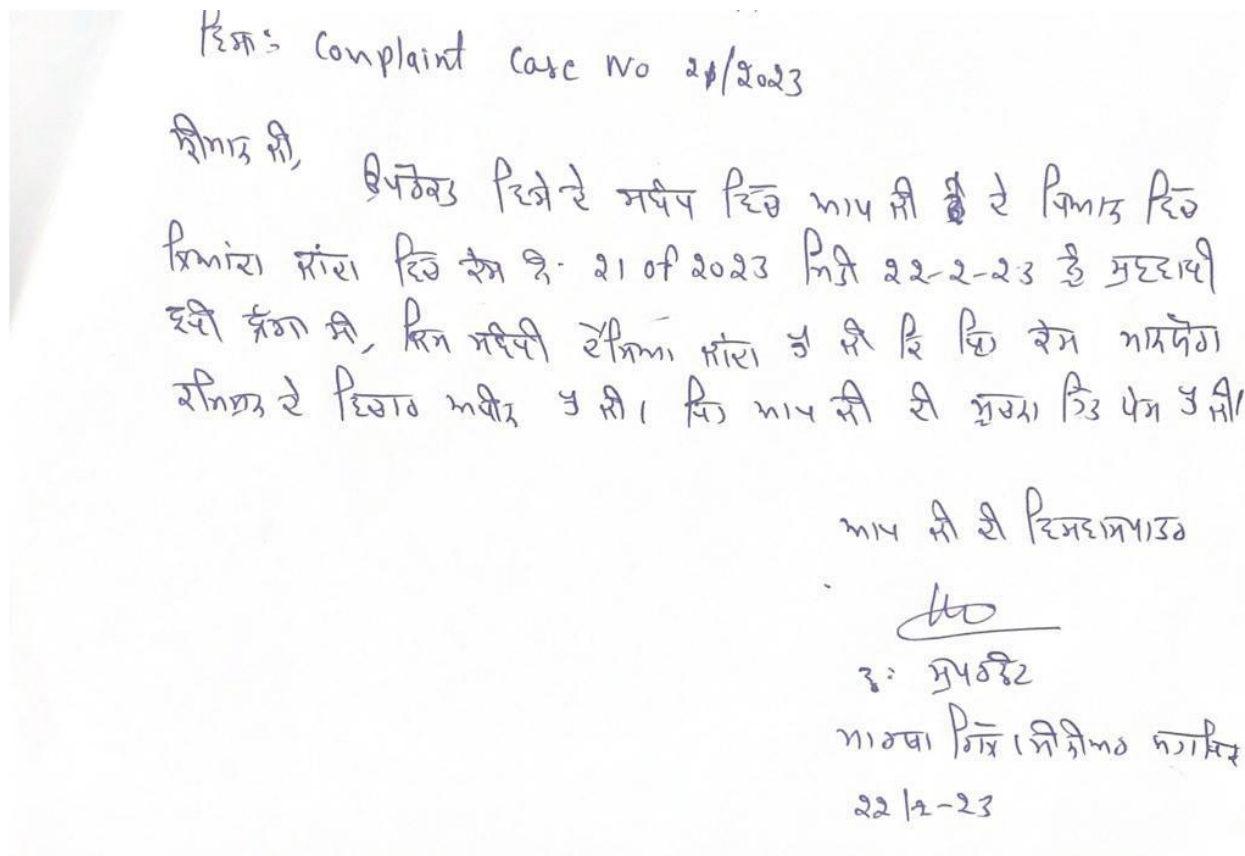 ਵਿਸ਼ਾ: Complaint Case No 21/2023
ਸ਼੍ਰੀਮਾਨ ਜੀ,
ਉਪਰੋਕਤ ਵਿਸ਼ੇ ਦੇ ਸਬੰਧ ਵਿੱਚ ਆਪ ਜੀ ਦੇ ਧਿਆਨ ਵਿੱਚ
ਲਿਆਂਦਾ ਜਾਂਦਾ ਵਿਚ ਕੇਸ ਨੰ. 21 of 2023 ਮਿਤੀ 22-2-23 ਨੂੰ ਸੁਣਵਾਈ
ਹੋਈ ਸੀ, ਜਿਸ ਸਬੰਧੀ ਦੱਸਿਆ ਜਾਂਦਾ ਹੈ ਜੀ ਕਿ ਇਹ ਕੇਸ ਮਾਨਯੋਗ
ਕਮਿਸ਼ਨ ਦੇ ਵਿਚਾਰ ਅਧੀਨ ਹੈ ਜੀ। ਇਹ ਆਪ ਜੀ ਦੀ ਸੂਚਨਾ ਹਿਤ ਪੇਸ਼ ਹੈ ਜੀ।
ਆਪ ਜੀ ਦੀ ਵਿਸ਼ਵਾਸਪਾਤਰ
ਸੁਪਰਡੈਂਟ
22/2-23